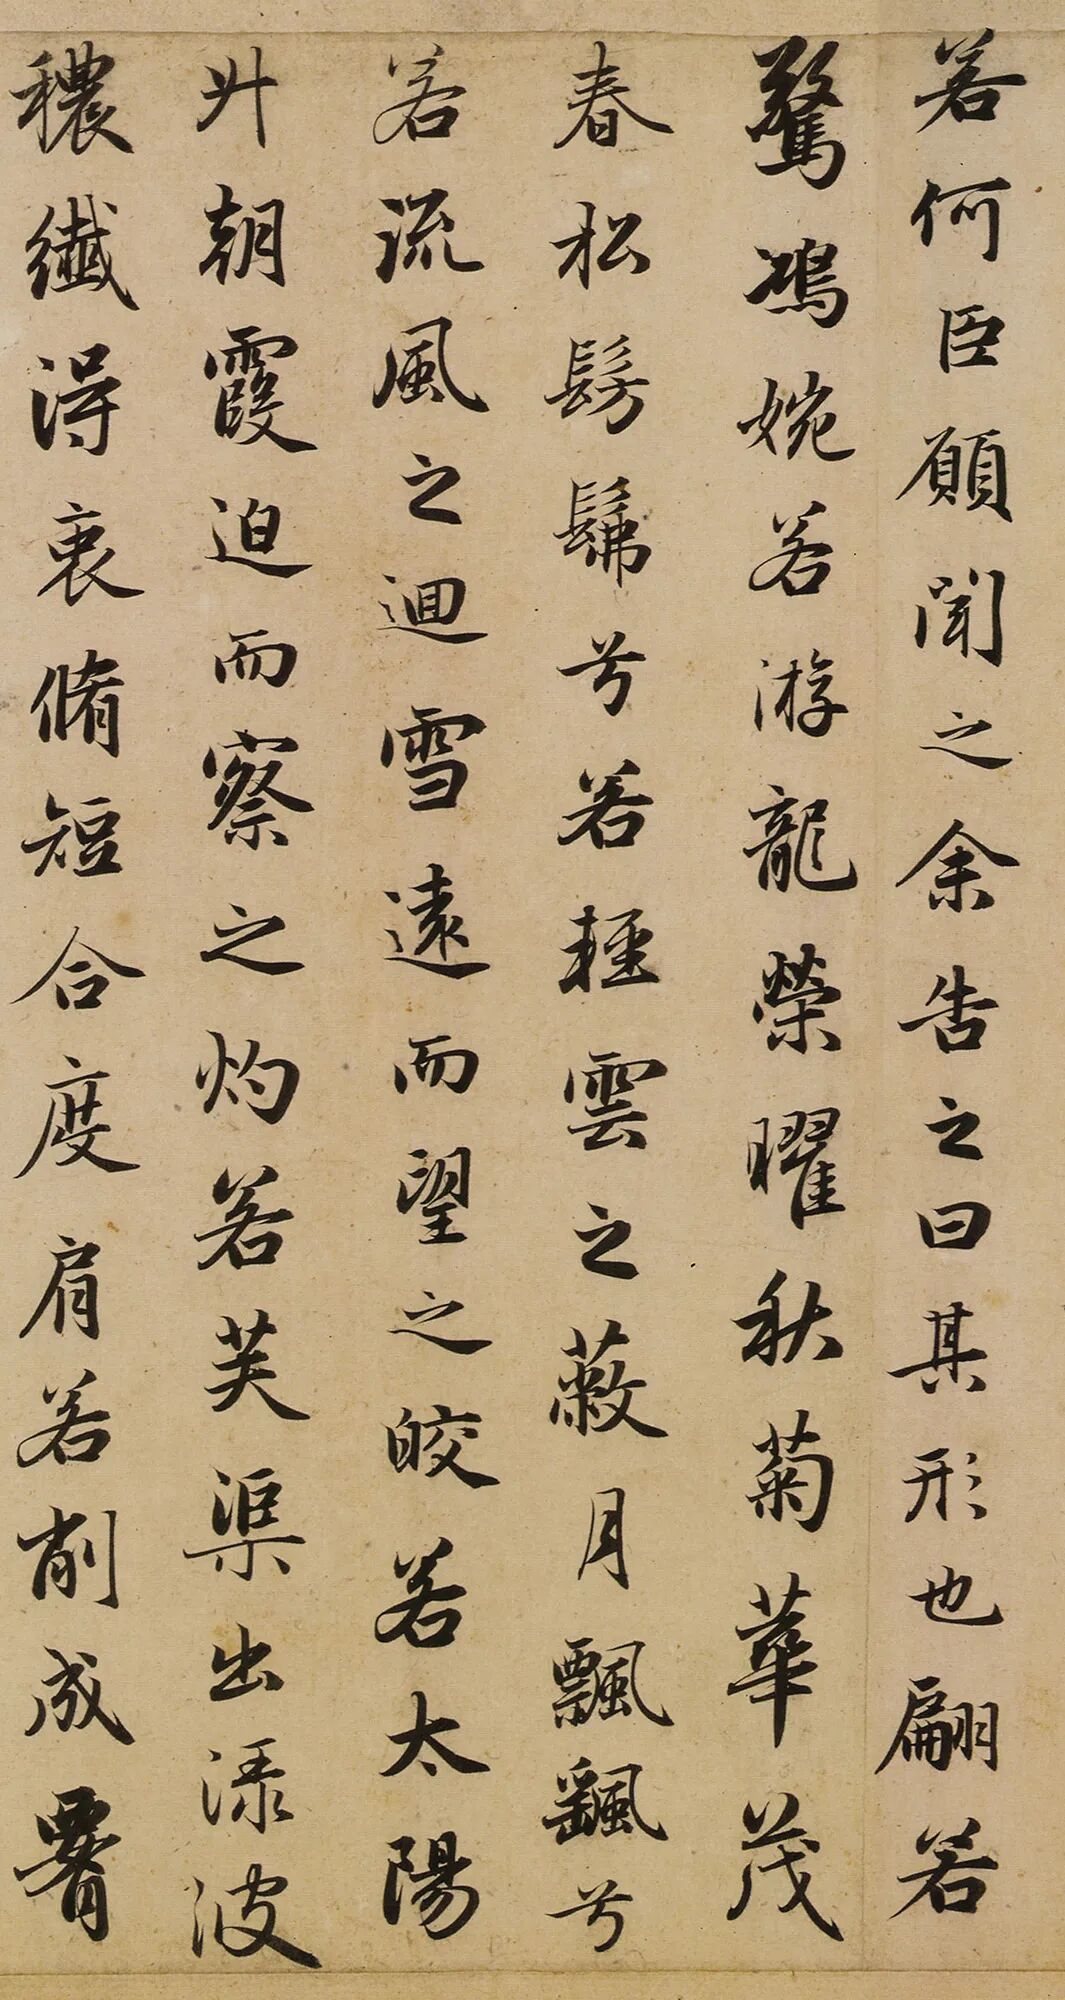 若何臣願聞之余告之曰其形也翩若
驚鴻婉若游龍榮曜秋菊華茂
春松髣髴兮若輕雲之蔽月飄颻兮
若流風之迴雪遠而望之皎若太陽
升朝霞迫而察之灼若芙渠出淥波
穠纖得衷脩短合度肩若削成腰